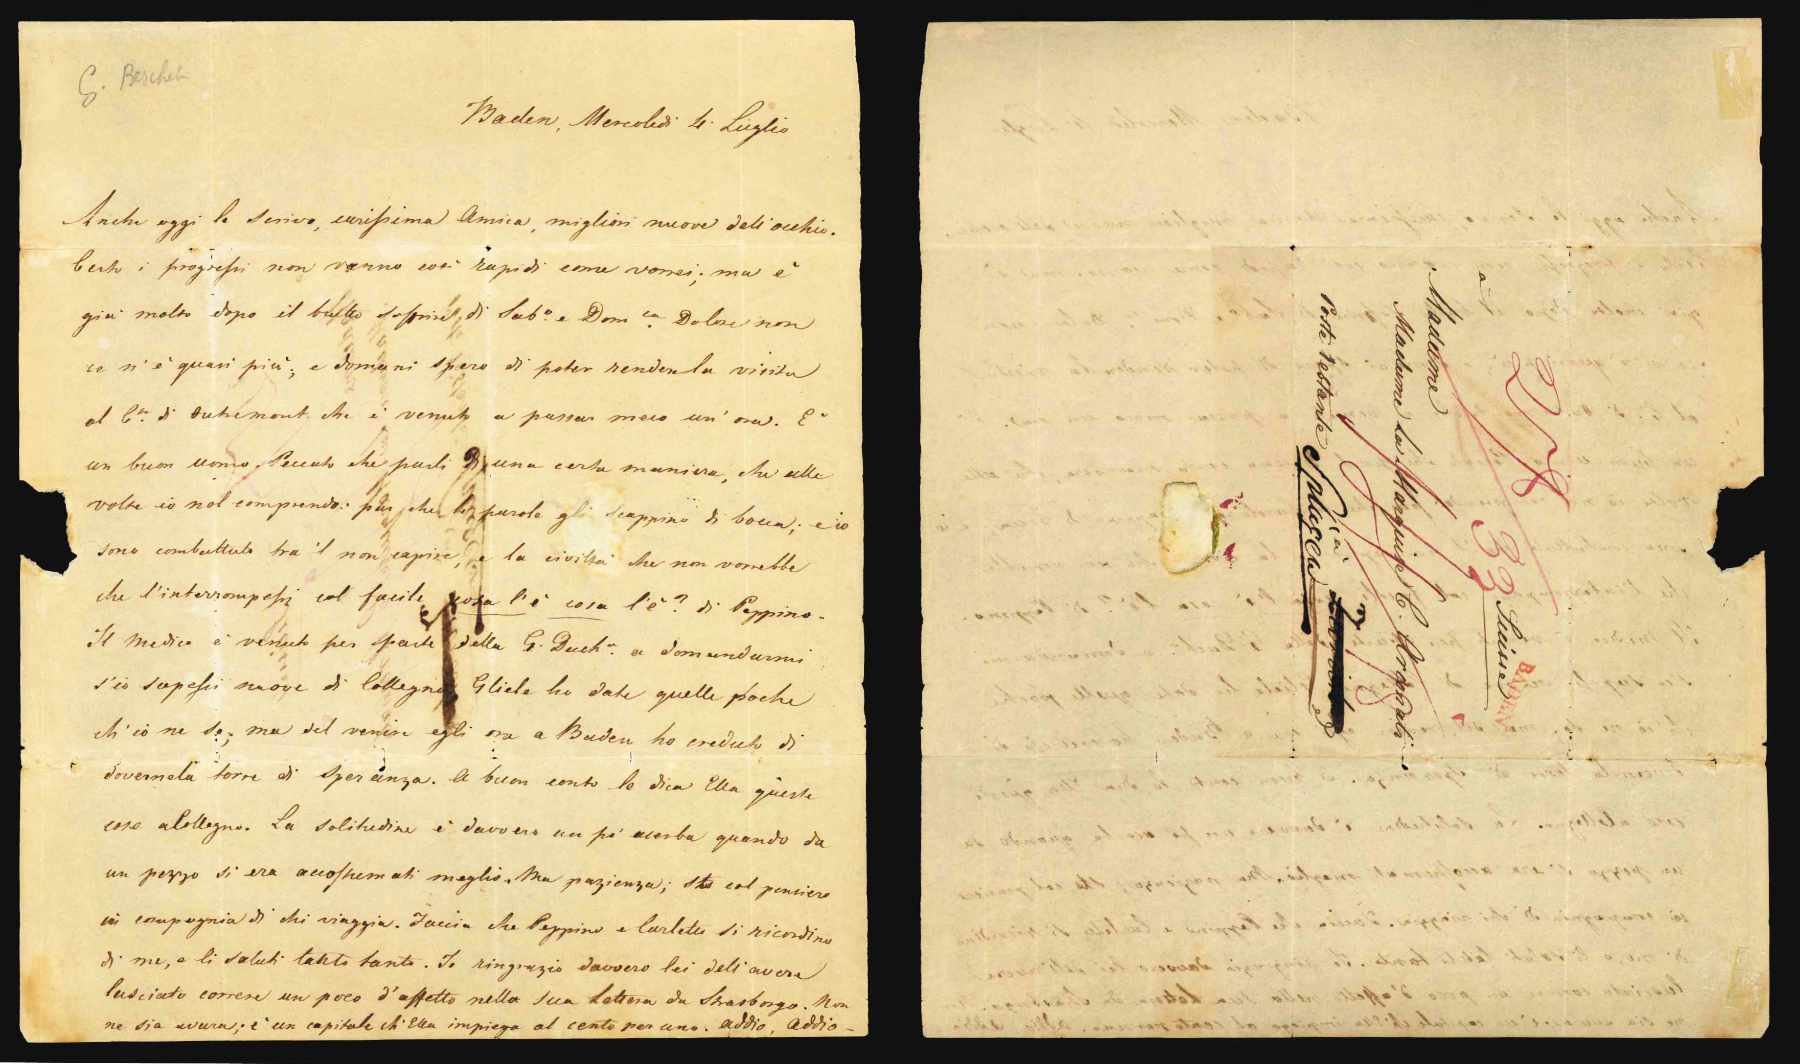 G. Berchet
Baden, Mercoledì 4. Luglio
Anche oggi le scrivo, carissima Amica, migliori nuove dell'occhio.
Certo i progressi non vanno così rapidi come vorrei; ma è
già molto dopo il brutto soffrire di Sab.o e Dom.ca. Dolore non
ce n'è quasi più; e domani spero di poter render la visita
al C.te di Outremont che è venuto a passar meco un'ora. È
un buon uomo. Peccato che parli d'una certa maniera, che alle
volte io nol comprendo: par che le parole gli scappino di bocca; e io
sono combattuto tra 'l non capire, e la civiltà che non vorrebbe
che l'interrompessi col facile cosa l'è cosa l'è? di Peppino.
Il medico è venuto per parte della G. Duch.a a domandarmi
s'io sapessi nuove di Collegno. Gliele ho date quelle poche
ch'io ne so; ma del venire egli ora a Baden ho creduto di
dovernela torre di speranza. A buon conto le dica Ella queste
cose a Collegno. La solitudine è davvero un po' acerba quando da
un pezzo si era accostumati meglio. Ma pazienza; sto col pensiero
in compagnia di chi viaggia. Faccia che Peppino e Carletto si ricordino
di me, e li saluti tanto tanto. Io ringrazio davvero lei dell'avere
lasciato correre un poco d'affetto nella sua lettera da Strasborgo. Non
ne sia avara; è un capitale ch'Ella impiega al cento per uno. Addio, Addio—
a
Madame
Madame la Marquise C. Arconati
Poste restante
à
Suisse
BADEN
33